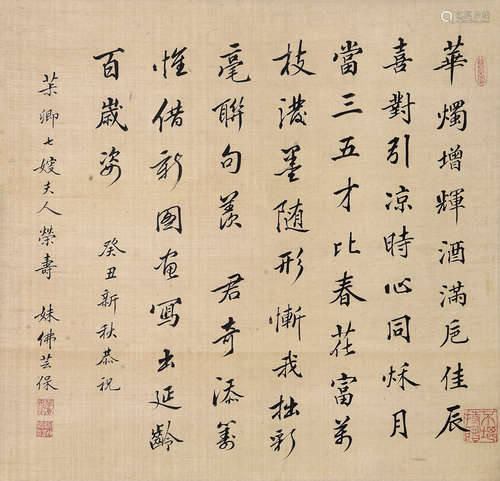 華燭增輝酒滿卮佳辰
喜對引凉時心同秌月
當三五才比春花富萬
枝潑墨随形慚我拙彩
毫聯句羨 君奇添籌
惟借新圖畫寫出延齡
百歲姿
癸丑新秋恭祝
葉卿七嫂夫人榮壽 妹佛芸保